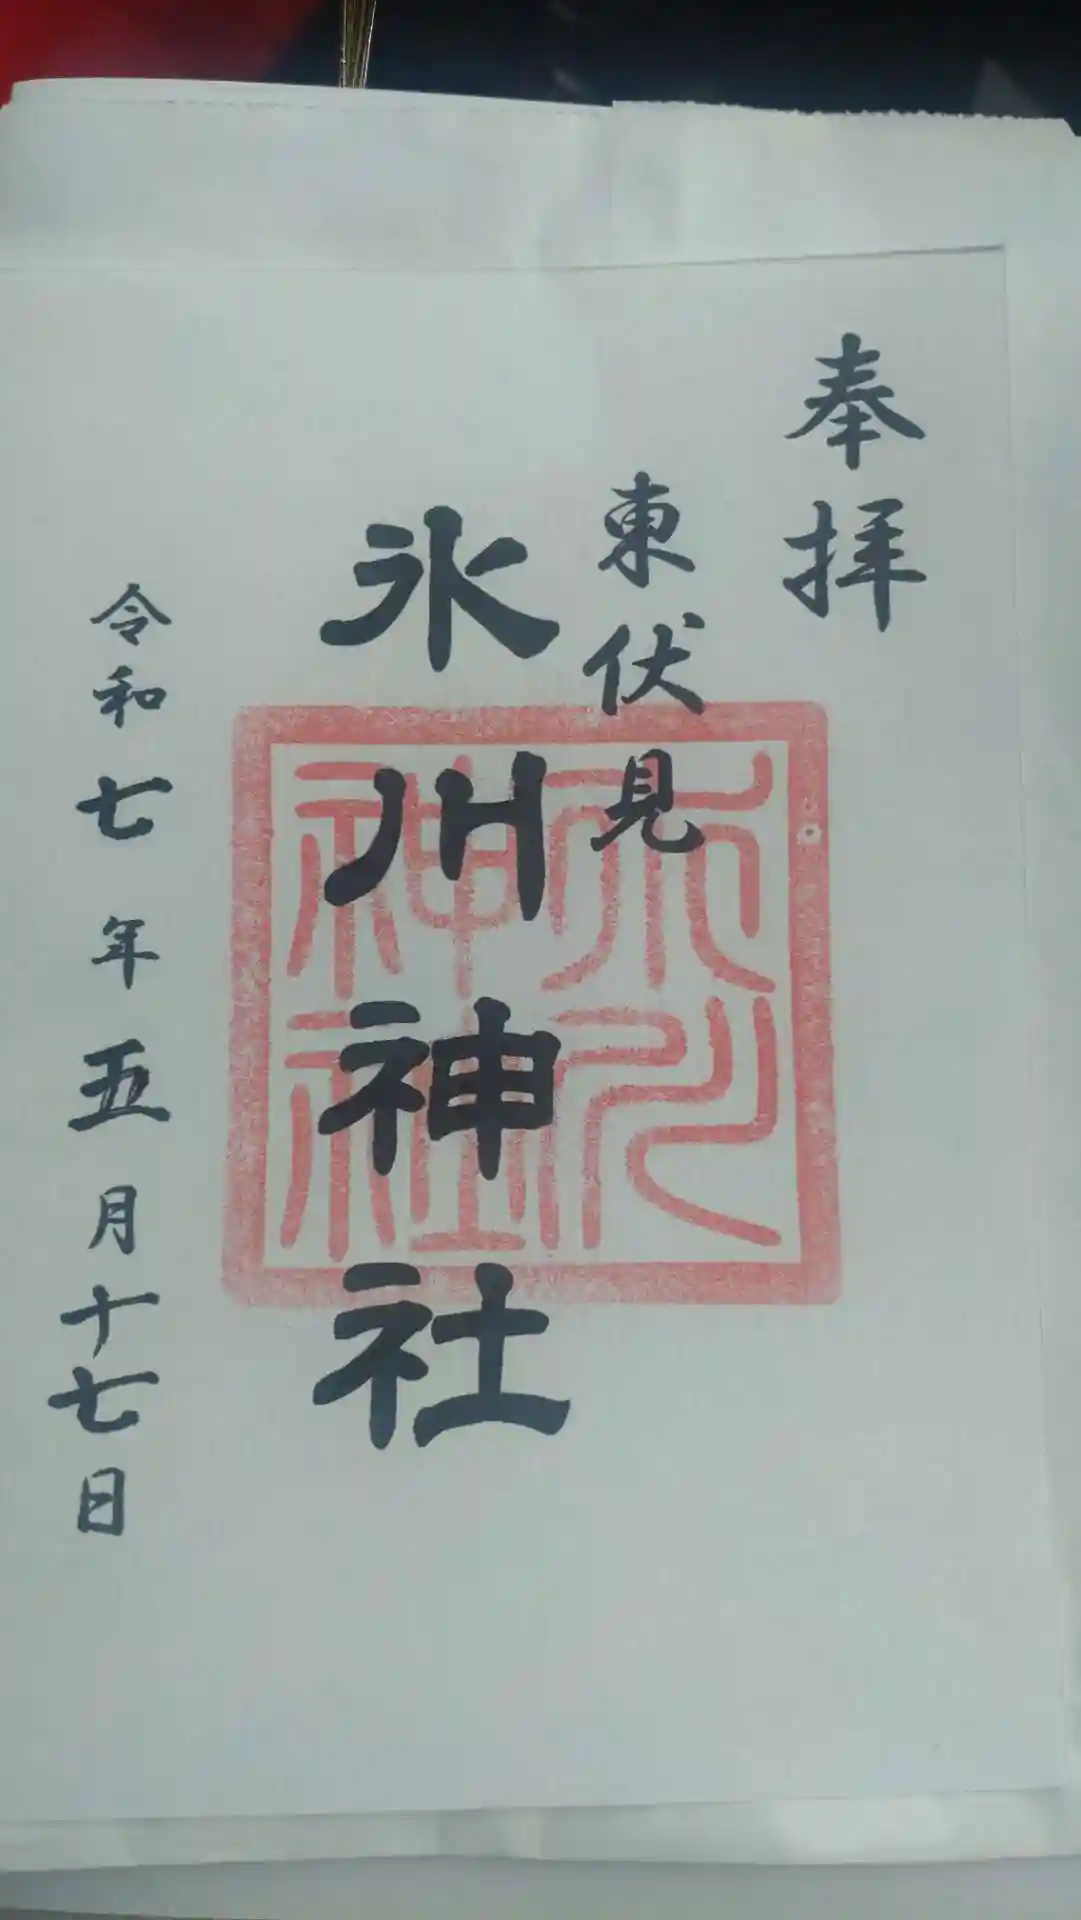 奉拝
東伏見
氷川神社
氷川神社
令和七年五月十七日